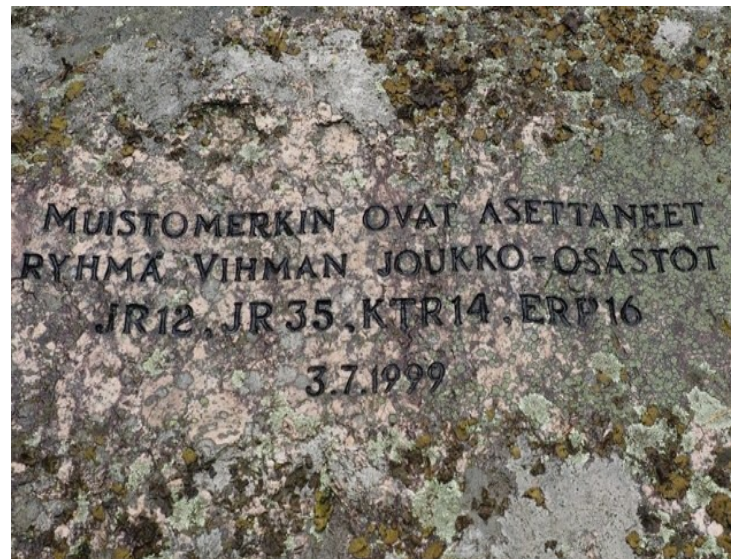 MUISTOMERKIN OVAT ASETTANEET
RYHMÄ VIHMAN JOUKKO-OSASTOT
JR12, JR35, KTR14, ERP16
3.7.1999